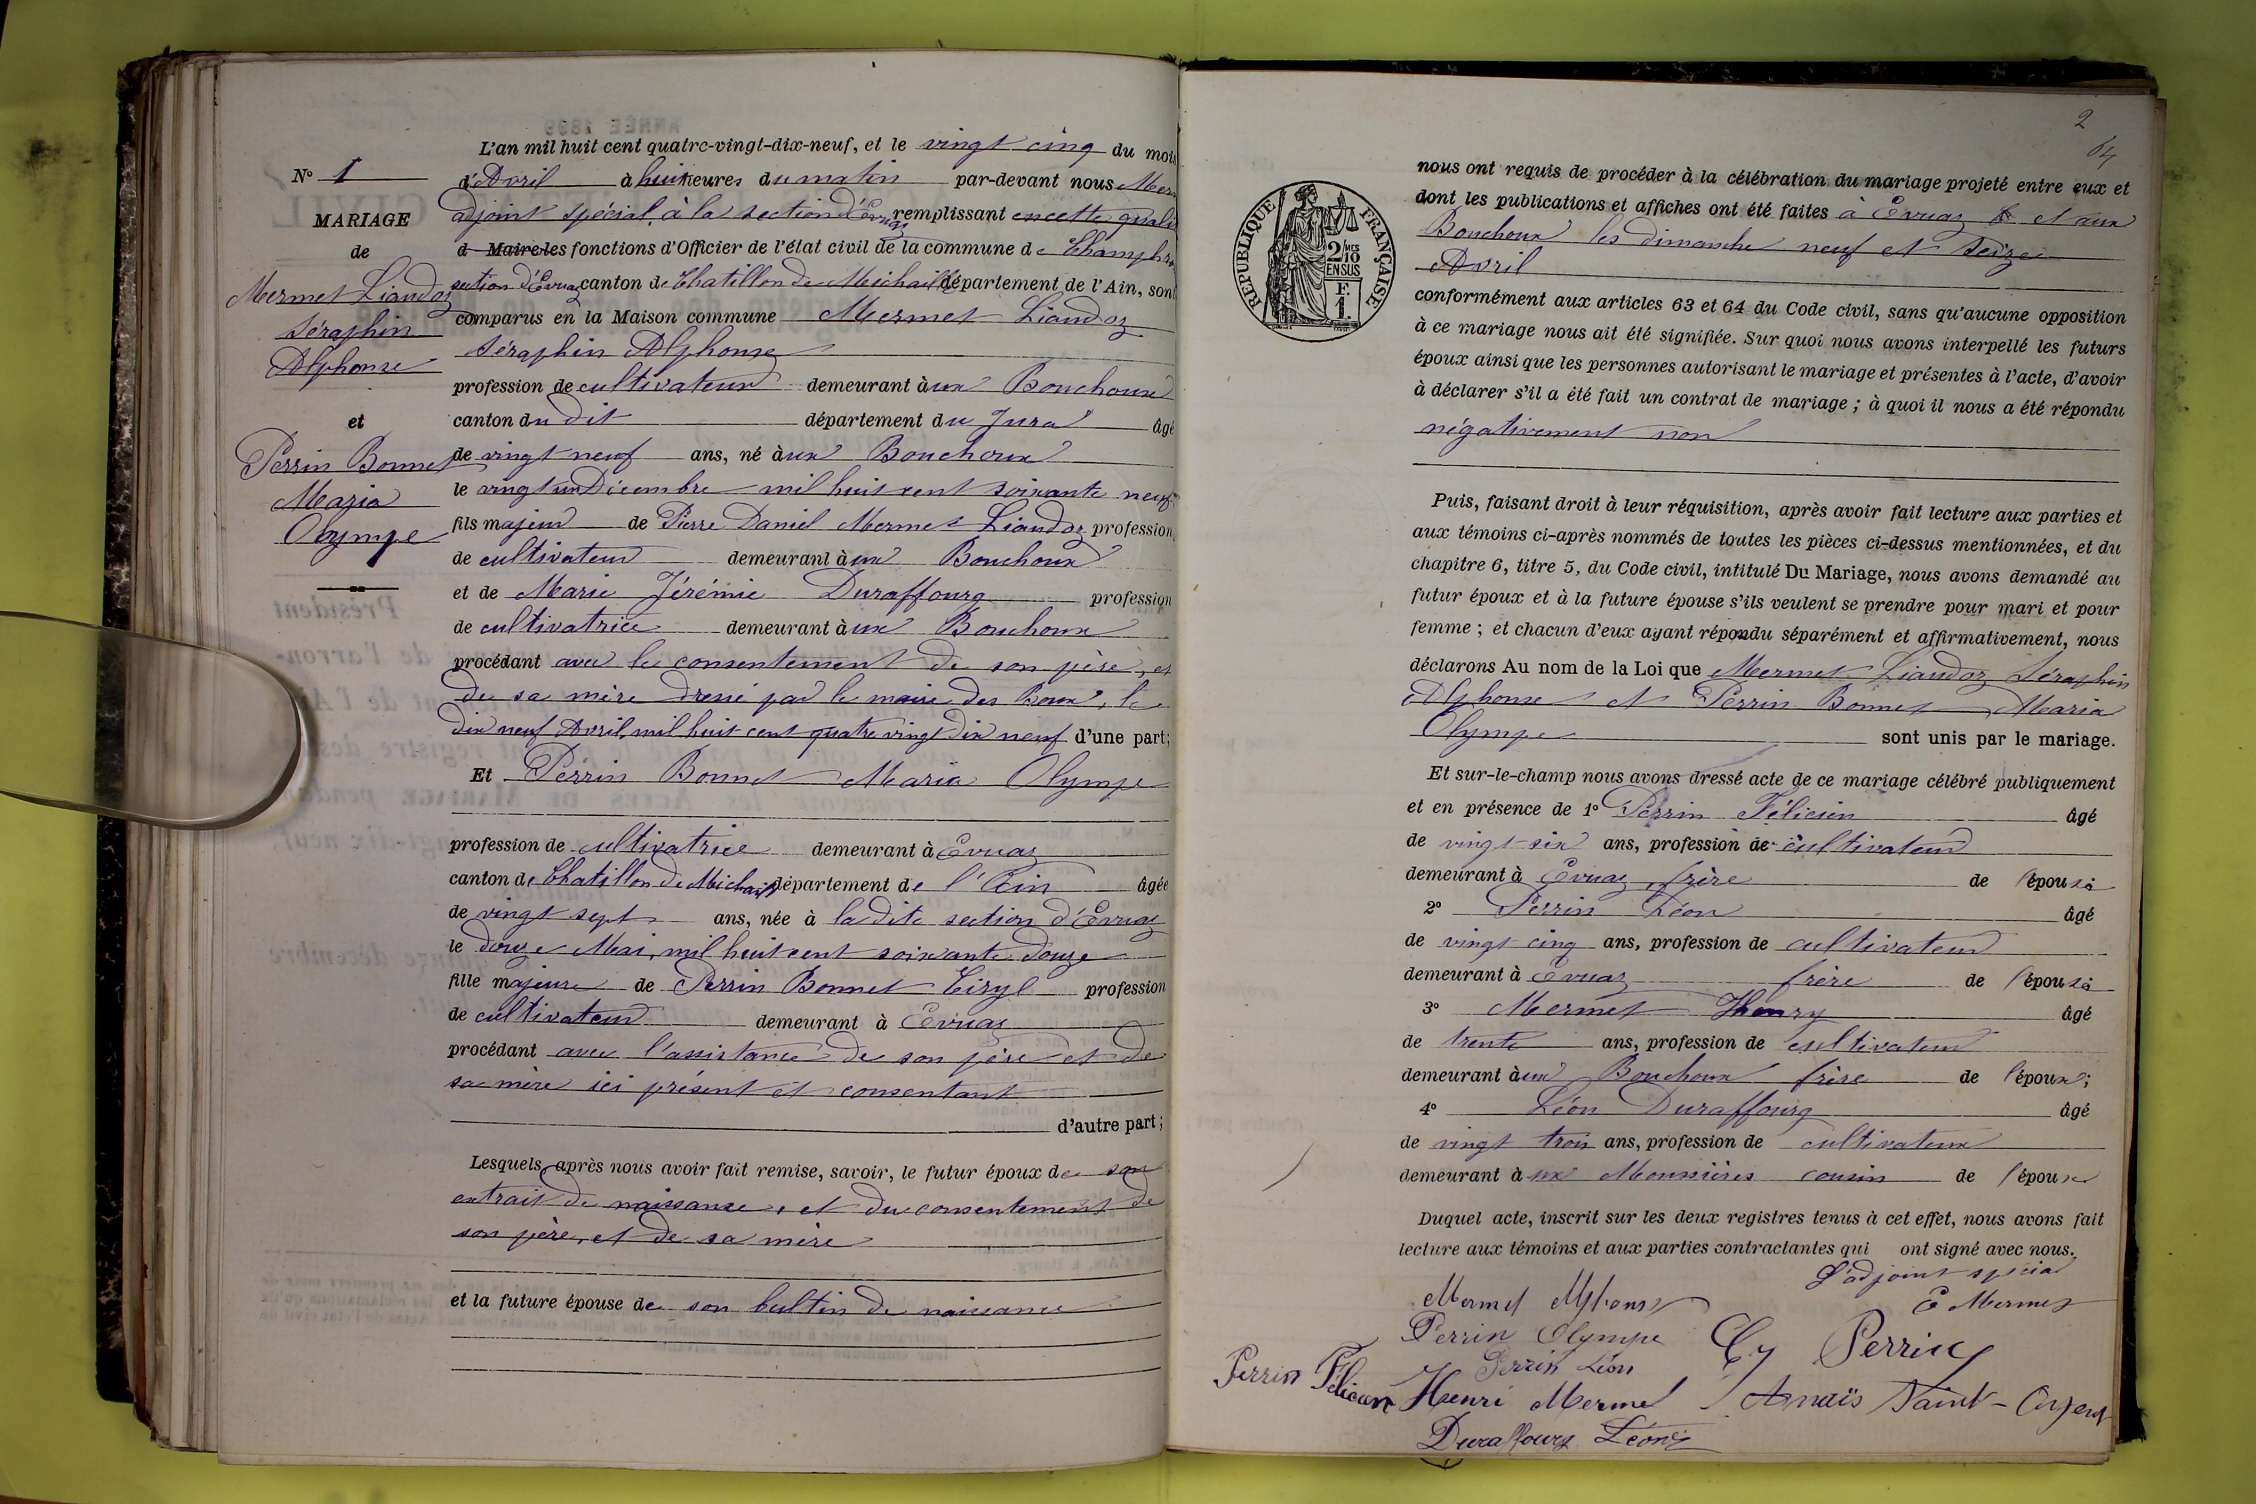 N° 1
MARIAGE
de
Mermet Liandoz
Séraphin
Alphonse
et
Perrin Bonnet
Maria
Olympe
L'an mil huit cent quatre-vingt-dix-neuf, et le vingt cinq du mois
d'Avril à huit heures du matin par-devant nous Mer
adjoint spécial à la section d'Evuaz remplissant en cette quali
d Maire les fonctions d'Officier de l'état civil de la commune de Champfro
section d'Evuaz canton de Chatillon de Michaille département de l'Ain, sont
comparus en la Maison commune Mermet Liandoz
Séraphin Alphonse
profession de cultivateur demeurant à ux Bouchoux
canton du dit département du Jura âgé
de vingt neuf ans, né à ux Bouchoux
le vingt un Décembre mil huit cent soixante neuf
fils majeur de Pierre Daniel Mermet Liandoz profession
de cultivateur demeurant à ux Bouchoux
et de Marie Jérémie Duraffourg profession
de cultivatrice demeurant à ux Bouchoux
procédant avec le consentement de son père, et
de sa mère dressé par le maire des Boux, le
dix neuf Avril, mil huit cent quatre vingt dix neuf d'une part;
Et Perrin Bonnet Maria Olympe
profession de cultivatrice demeurant à Evuaz
canton de Chatillon de Michaille département de l'Ain âgée
de vingt sept ans, née à la dite section d'Evuaz
le douze Mai, mil huit cent soixante douze
fille majeure de Perrin Bonnet Ciryl profession
de cultivateur demeurant à Evuaz
procédant avec l'assistance de son père et de
sa mère ici présent et consentant
d'autre part;
Lesquels, après nous avoir fait remise, savoir, le futur époux de son
extrait de naissance, et du consentement de
son père, et de sa mère
et la future épouse de son bultin de naissance
2
64
RÉPUBLIQUE FRANÇAISE
2/10 MES
EN SUS
F.
1.
nous ont requis de procéder à la célébration du mariage projeté entre eux et
dont les publications et affiches ont été faites à Evuaz et aux
Bouchoux les dimanche neuf et seize
Avril
conformément aux articles 63 et 64 du Code civil, sans qu'aucune opposition
à ce mariage nous ait été signifiée. Sur quoi nous avons interpellé les futurs
époux ainsi que les personnes autorisant le mariage et présentes à l'acte, d'avoir
à déclarer s'il a été fait un contrat de mariage ; à quoi il nous a été répondu
négativement non
Puis, faisant droit à leur réquisition, après avoir fait lecture aux parties et
aux témoins ci-après nommés de toutes les pièces ci-dessus mentionnées, et du
chapitre 6, titre 5, du Code civil, intitulé Du Mariage, nous avons demandé au
futur époux et à la future épouse s'ils veulent se prendre pour mari et pour
femme ; et chacun d'eux ayant répondu séparément et affirmativement, nous
déclarons Au nom de la Loi que Mermet Liandoz Séraphin
Alphonse et Perrin Bonnet Maria
Olympe sont unis par le mariage.
Et sur-le-champ nous avons dressé acte de ce mariage célébré publiquement
et en présence de 1° Perrin Félicien âgé
de vingt six ans, profession de cultivateur
demeurant à Evuaz, frère de l'épousé
2° Perrin Léon âgé
de vingt cinq ans, profession de cultivateur
demeurant à Evuaz frère de l'épousé
3° Mermet Henry âgé
de trente ans, profession de cultivateur
demeurant à ux Bouchoux frère de l'époux;
4° Léon Duraffourg âgé
de vingt trois ans, profession de cultivateur
demeurant à ux Moussières cousin de l'époux
Duquel acte, inscrit sur les deux registres tenus à cet effet, nous avons fait
lecture aux témoins et aux parties contractantes qui ont signé avec nous.
L'adjoint spécial
E Mermet
Mermet Alphonse
Perrin Olympe
Cy Perrin
Perrin Léon
Perrin Félicien
Henri Mermet
Anaïs Saint-Oyent
Duraffourg Léon